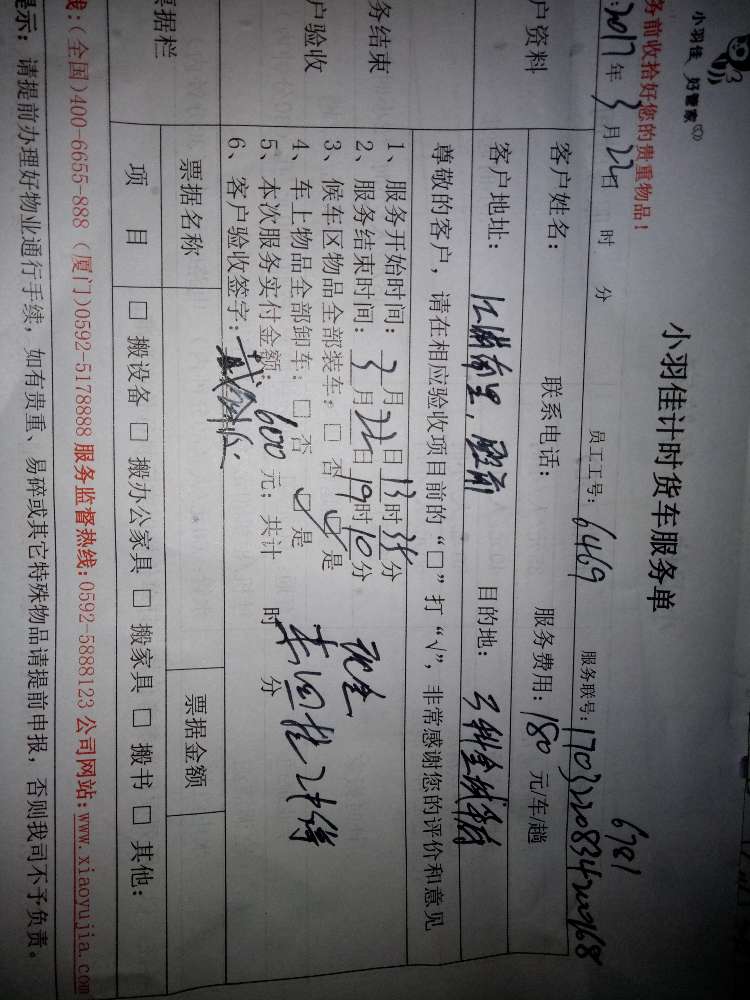 小羽佳 好管家
务前收拾好您的贵重物品！
小羽佳计时货车服务单
2017年3月22日 时 分 员工工号：6469 服务联号：
6781
户资料 客户姓名： 联系电话： 服务费用：180元/车/趟
客户地址： 目的地：
尊敬的客户，请在相应验收项目前的“□”打“√”，非常感谢您的评价和意见
务结束
户验收
1、服务开始时间：3月22日13时35分
2、服务结束时间：3月22日19时10分
3、候车区物品全部装车：□否 ☑是
4、车上物品全部卸车：□否 ☑是
5、本次服务实付金额：600元；共计 时 分
6、客户验收签字：
现金
票据栏 票据名称 票据金额
项 目 □ 搬设备 □ 搬办公家具 □ 搬家具 □ 搬书 □ 其他：
线：(全国)400-6655-888 (厦门)0592-5178888 服务监督热线：0592-5888123 公司网站：www.xiaoyujia.com
提示：请提前办理好物业通行手续，如有贵重、易碎或其它特殊物品请提前申报，否则我司不予负责。